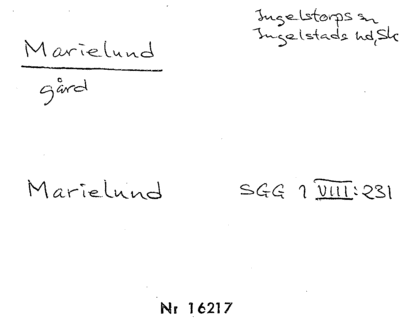 Ingelstorps sn
Marielund
Ingelstads hd, Sk
gård
Marielund SGG 1 VIII:231
Nr 16217